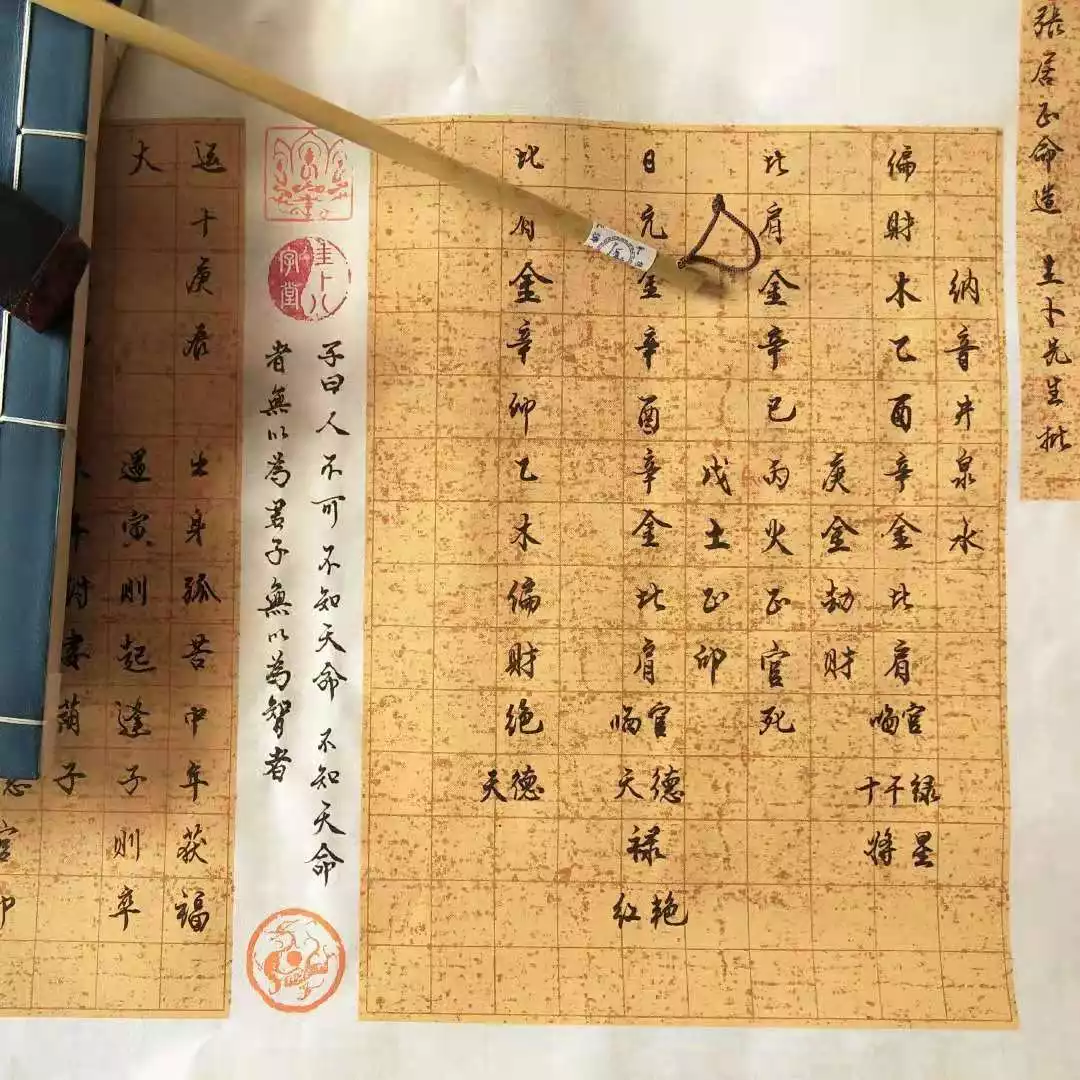 張居正命造 圭卜先生批
納音井泉水
偏財木乙酉辛金比肩
臨官
十干祿
將星
庚金劫財
比肩金辛巳丙火正官死
戊土正印
日元金辛酉辛金比肩
臨官
天德
祿
红艳
比肩金辛卯乙木偏財绝
天德
子曰人不可不知天命 不知天命
者無以為君子無以為智者
圭卜八字堂
運十庚辰 出身孤苦中年获福
大 遇寅則起逢子則卒